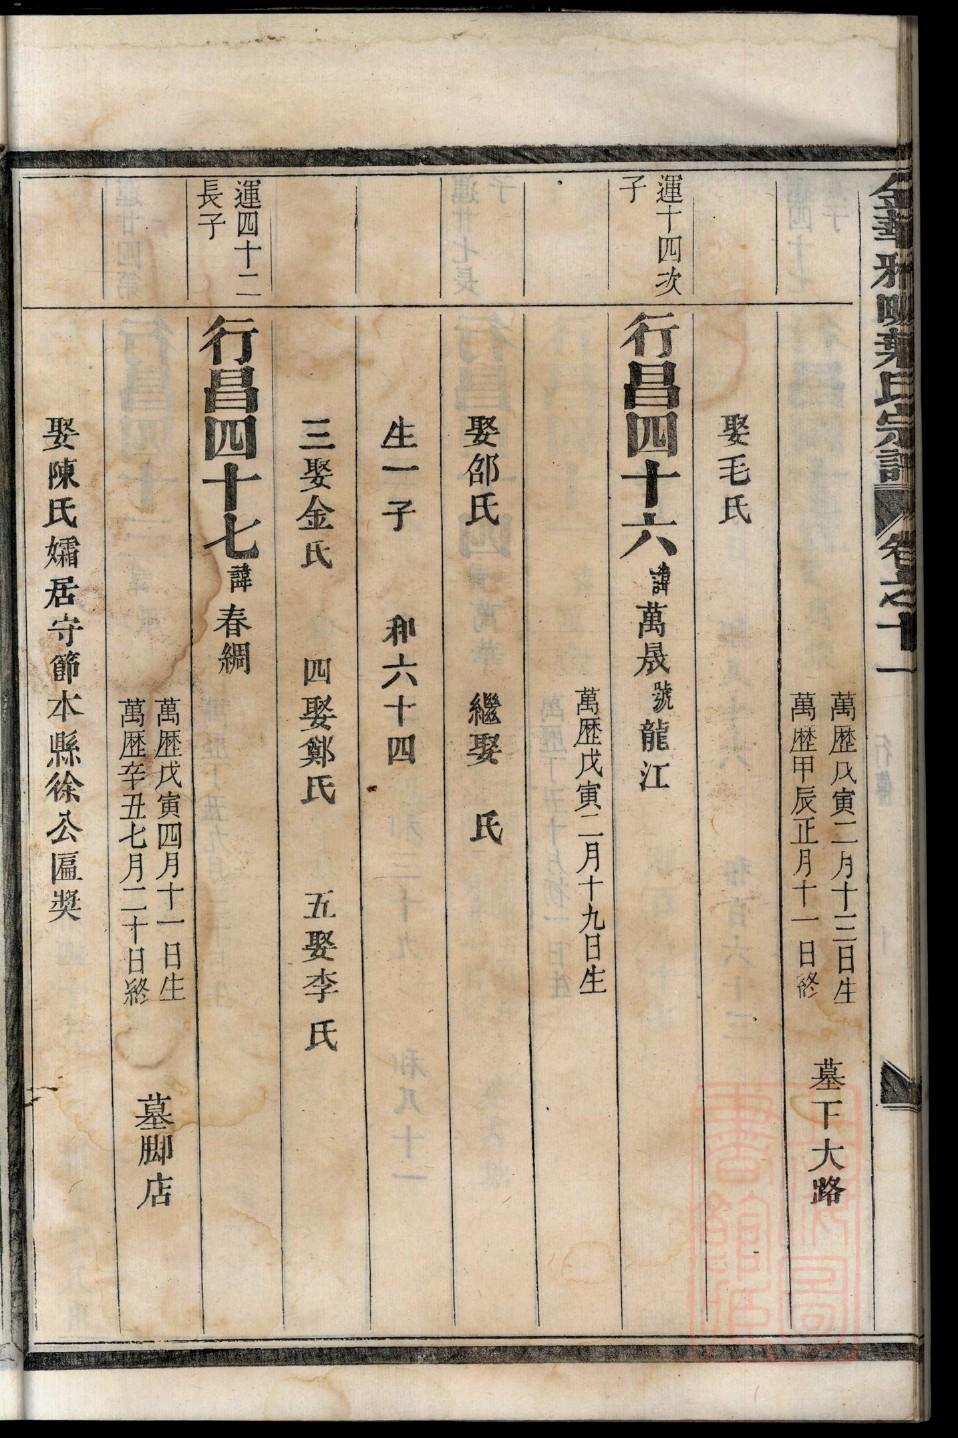 葉氏宗譜
卷之十一
行傳
萬歷戊寅二月十三日生
萬歷甲辰正月十一日終
墓下大路
娶毛氏
運十四次
子
行昌四十六
諱
萬晟
號
龍江
萬歷戊寅二月十九日生
娶邵氏 繼娶 氏
生一子 和六十四
三娶金氏 四娶鄭氏 五娶李氏
運四十二
長子
行昌四十七
諱
春綢
萬歷戊寅四月十一日生
萬歷辛丑七月二十日終
墓脚店
娶陳氏孀居守節本縣徐公匾奬